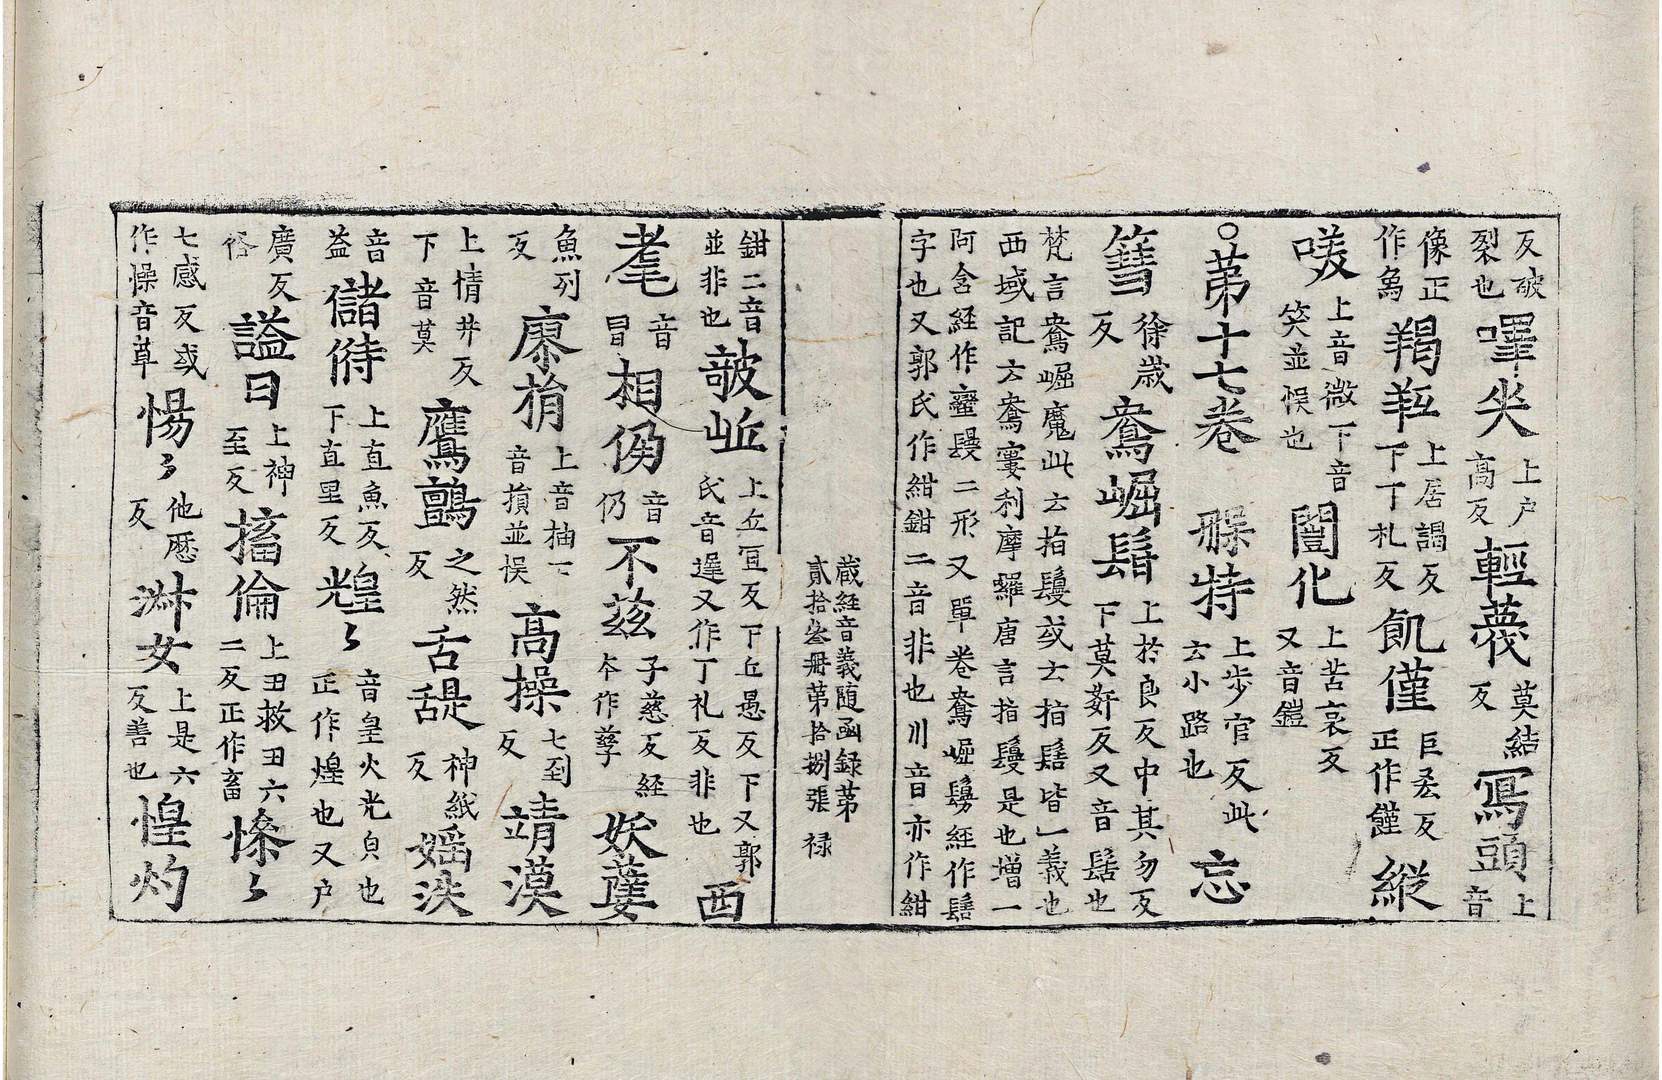 反破裂也㘁尖上户高反輕薎莫結反冩頭上音
像正作爲羯羝上居謁反下丁札反飢僅巨𠫤反正作饉縱
㗛上音微下音笑並悮也闓化上苦哀反又音鎧
○苐十七卷䏶特上步官反此云小路也忘
篲徐歲反鴦崛髻上扵良反中其勿反下莫姧反又音髻也
梵言鴦崛魔此云指鬘或云指髻皆一義也
西域記云鴦窶利摩羅唐言指鬘是也增一
阿含經作鬘二形又單卷鴦崛髣經作髻
字也又郭氏作紺鉗二音非也川音亦作紺
藏經音義随函録苐
貳拾叁冊苐拾捌張 禄
鉗二音並非也皷岴上丘冝反下丘愚反下又郭氏音遟又作丁礼反非也西
耄音冒相仍音仍不兹子慈反経夲作孳妖孽
魚列反㾾揹上音抽下音損並悮高操七到反靖漠
上情井反下音莫鷹鸇之然反舌舓神紙反婬泆
音益儲偫上直魚反下直里反煌〻音皇火光皃也正作煌也又户
廣反俗謚曰上神至反搐倫上丑救丑六二反正作畜慘〻
七感反或作懆音草惕〻他厯反淋女上是六反善也惶灼